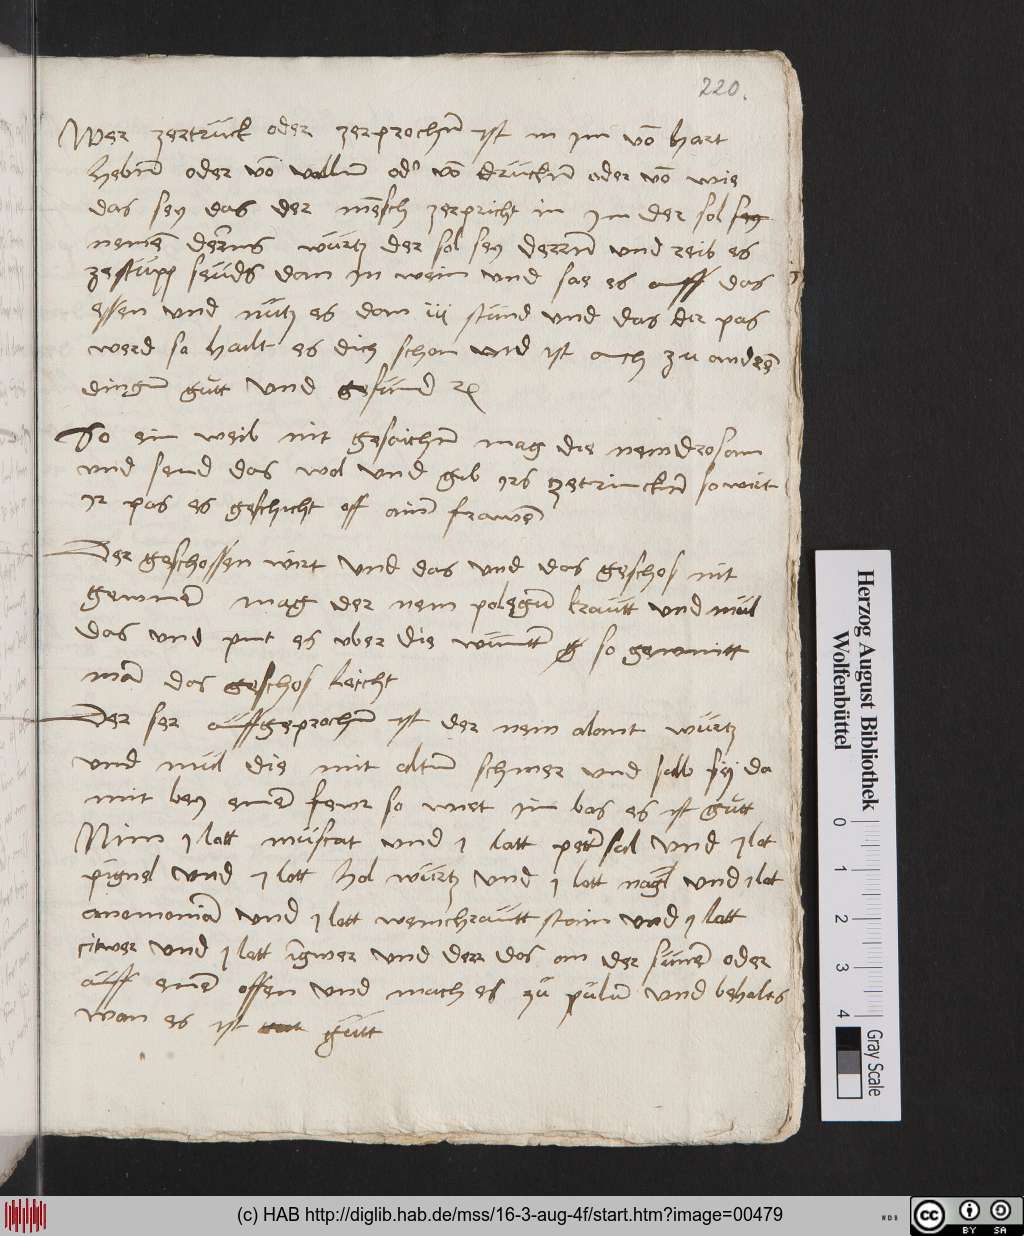 220.
Wer zertruck oder zerprochn̄ ist in im võ hart
hebn̄ oder võ valln̄ od' võ druckn̄ oder võ wie
das sey das der mẽsch zerpricht in Im der sol
nemẽ wurtz der sol sey derrn̄ und reib es
ze stupp seuds dan in wein und sae es auff das
essen und nutz es dan iij stund und das dir pas
werd so hailt es dich schon und ist auch zu andrẽ
dingn̄ gutt und gesund
So ein weib nit gesaichn̄ mag die nem drosam
und send das wol und gib irs zetrinckn̄ so wirt
ir pas es geschicht off ainn̄ frawẽ
Der geschossen wirt und das und das geschos nit
gewinnẽ mag der nem polegn̄ krautt und mul
das und pint es uber die wuntn̄ so gewinitt
mã das geschos leicht
Der ser auffgeprochn̄ ist der nem alant wurtz
und mul die mit altn̄ schmer und salb sey da
mit bey einẽ fewr so wiet im bas es ist gutt
Nim j lott muscat und j lott petersil und j lot
pignel und j lott hol wurtz und j lott nagl und j lot
anomoniã und j lott weinchrautt stain und j lott
citwer und j lott ingwer und derr das an der sunnẽ oder
auff einẽ offen und mach es zu pulu̅ und behalts
wan es ist gutt
Herzog August Bibliothek
Wolfenbüttel
0 1 2 3 4
Gray Scale
(c) HAB http://diglib.hab.de/mss/16-3-aug-4f/start.htm?image=00479
WDB
cc BY SA